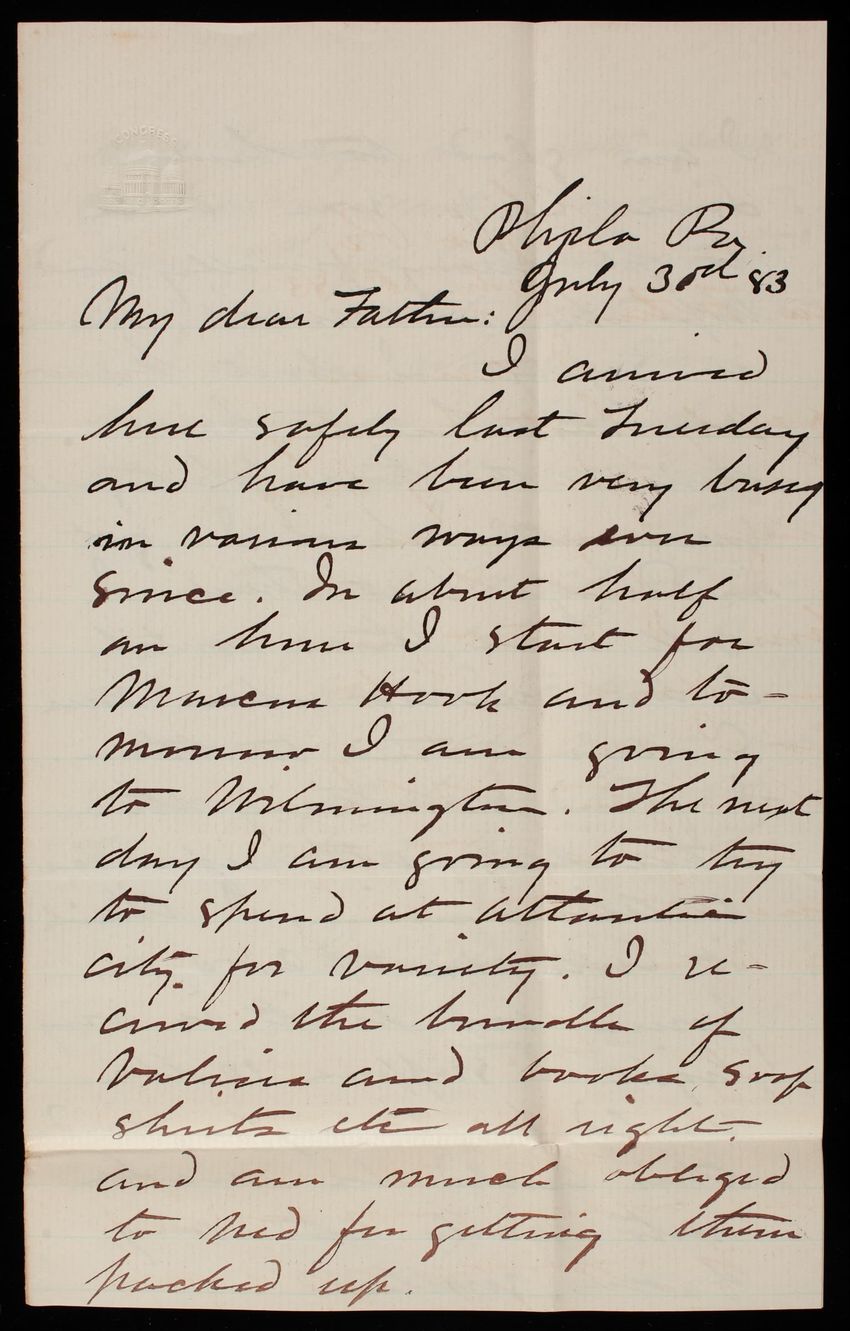 CONGRESS
Phila Pa.
July 30th 83
My dear Father:
I arrived
here safely last Tuesday
and have been very busy
in various ways ever
since. In about half
an hour I start for
Marcus Hook and to-
morrow I am going
to Wilmington. The next
day I am going to try
to spend at Atlantic
city for variety. I re-
ceived the bundle of
and books, soap
shirts etc all right.
and am much obliged
to Ned for getting them
packed up.